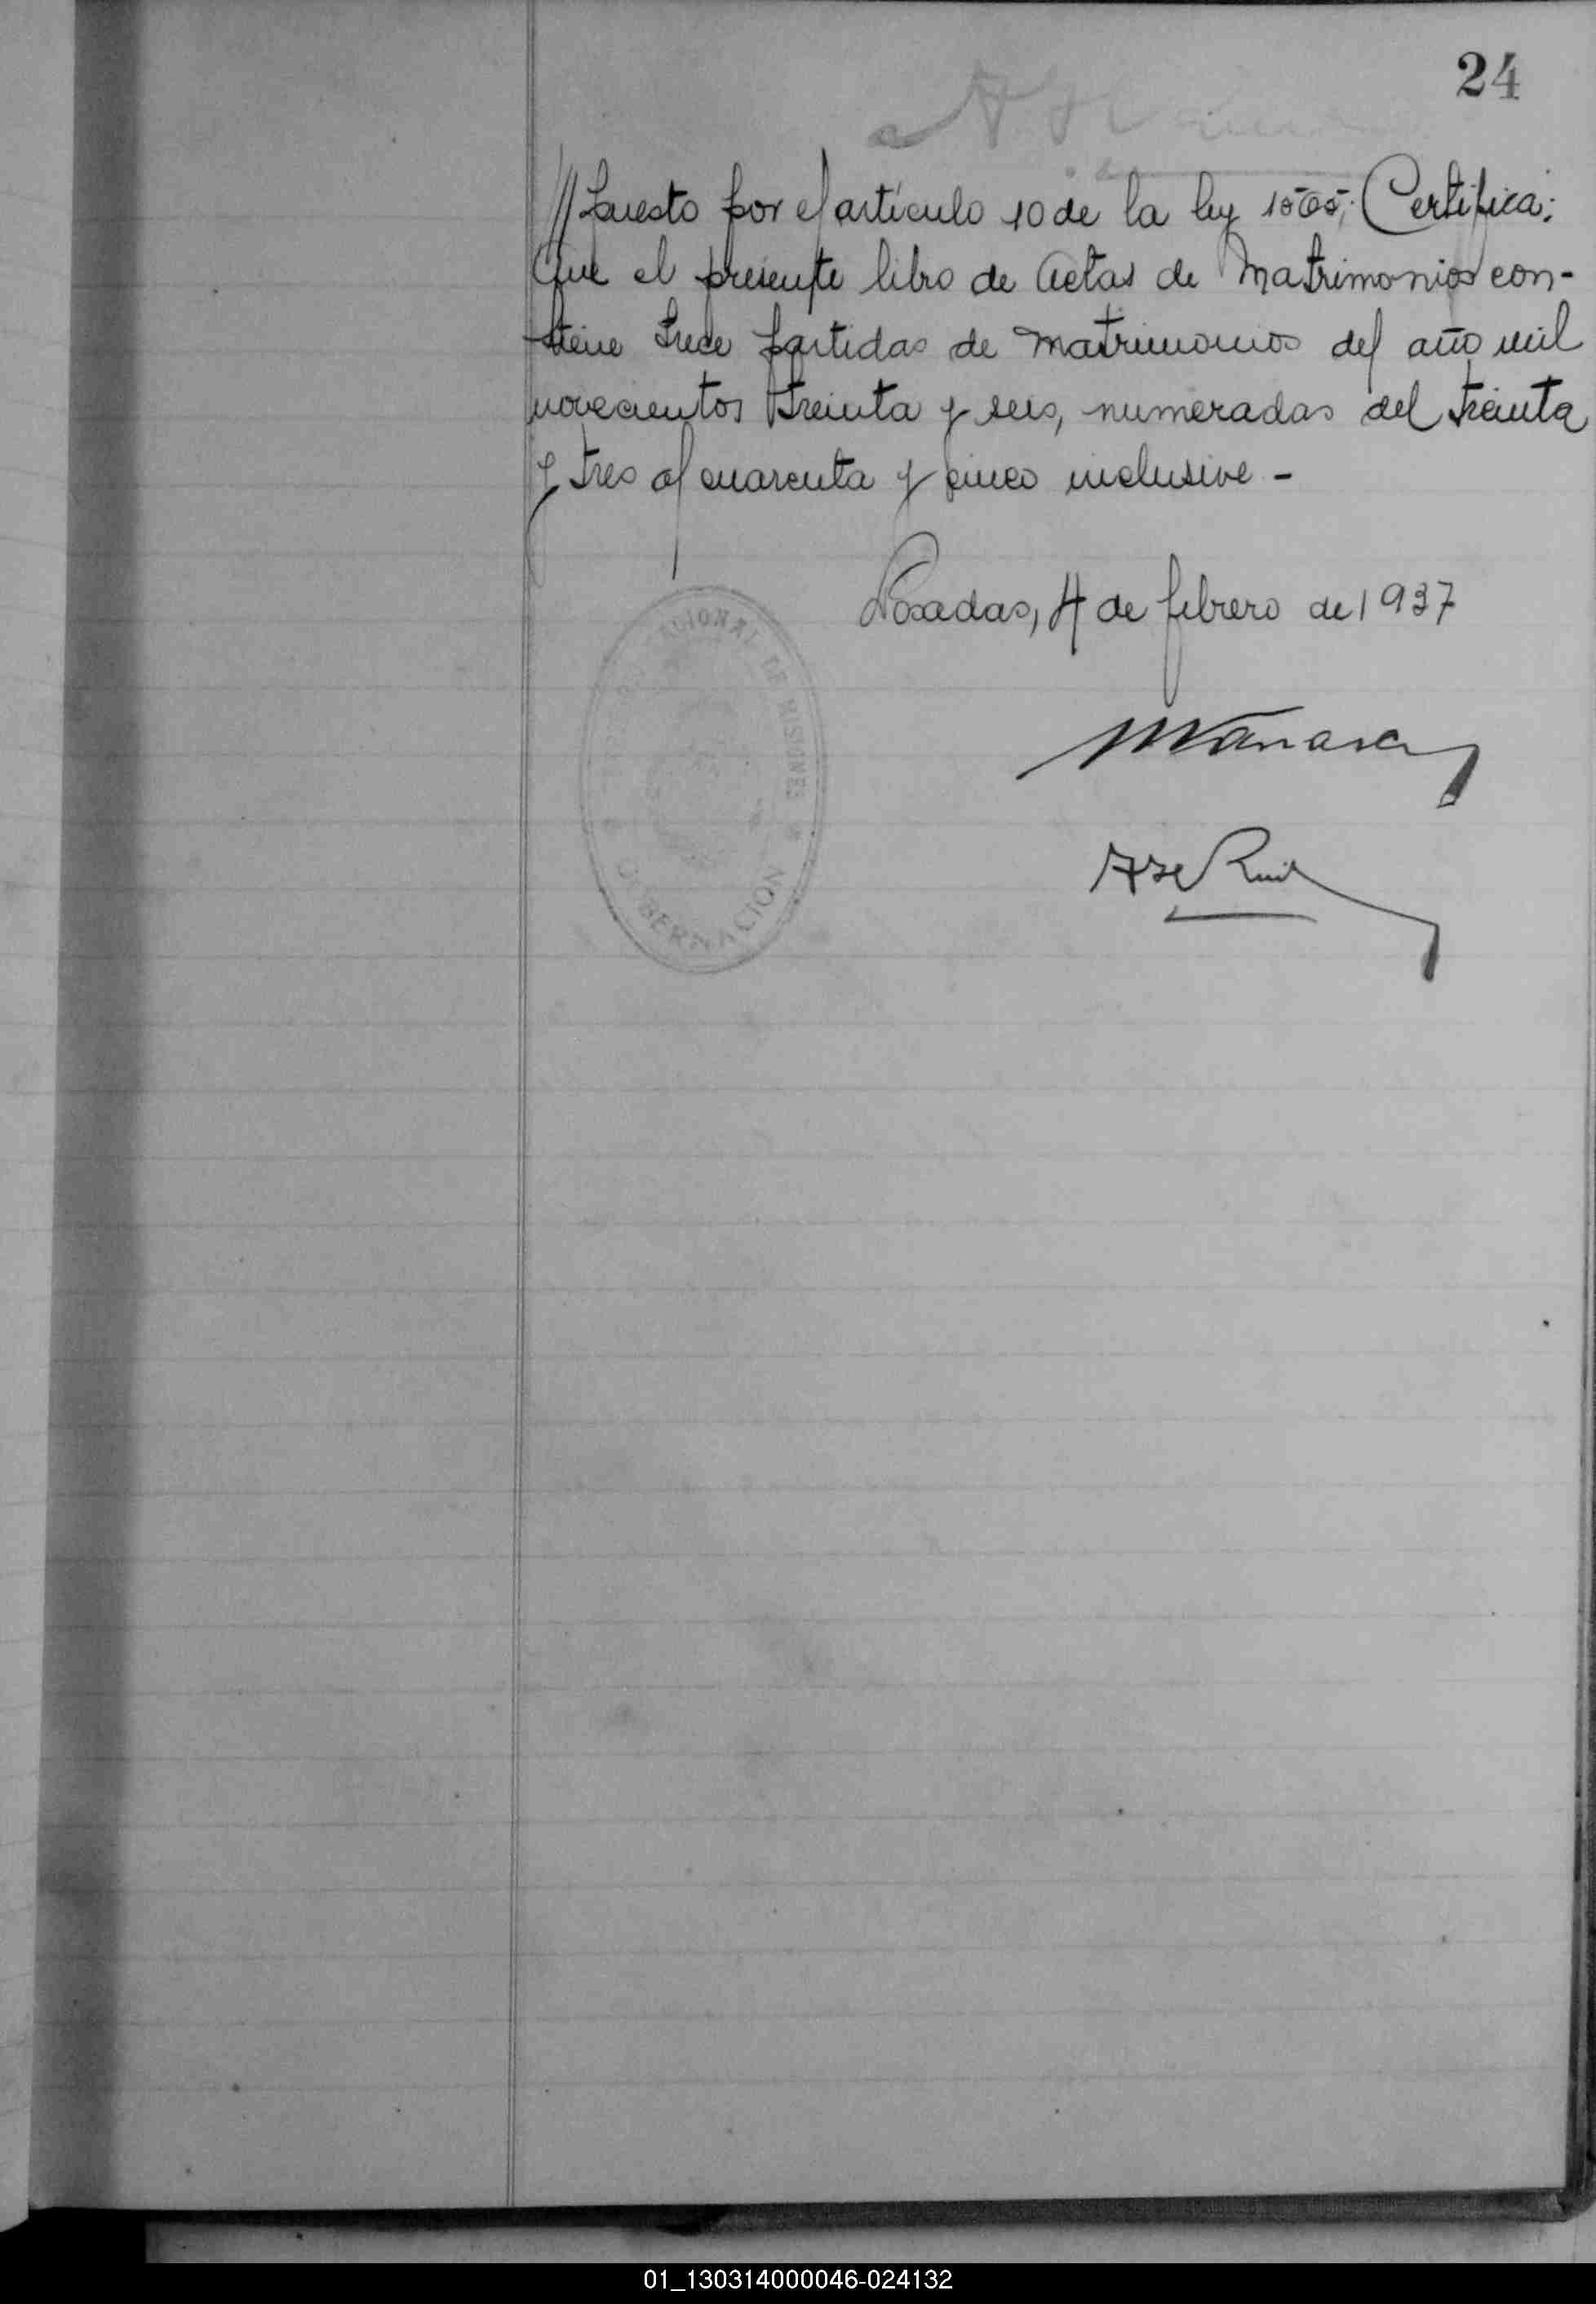 24
///puesto por el artículo 10 de la ley 1565; Certifica:
Que el presente libro de Actas de Matrimonios con-
tiene trece partidas de matrimonios del año mil
novecientos treinta y seis, numeradas del treinta
y tres al cuarenta y cinco inclusive -
Posadas, 4 de febrero de 1937
NACIONAL DE MISIONES
GOBERNACION
Ruiz
01_130314000046-024132